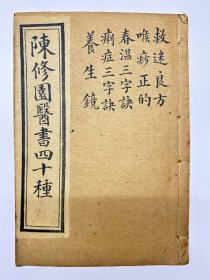 救迷良方
喉痧正的
春温三字訣
痢症三字訣
養生鏡
陳修園醫書四十種